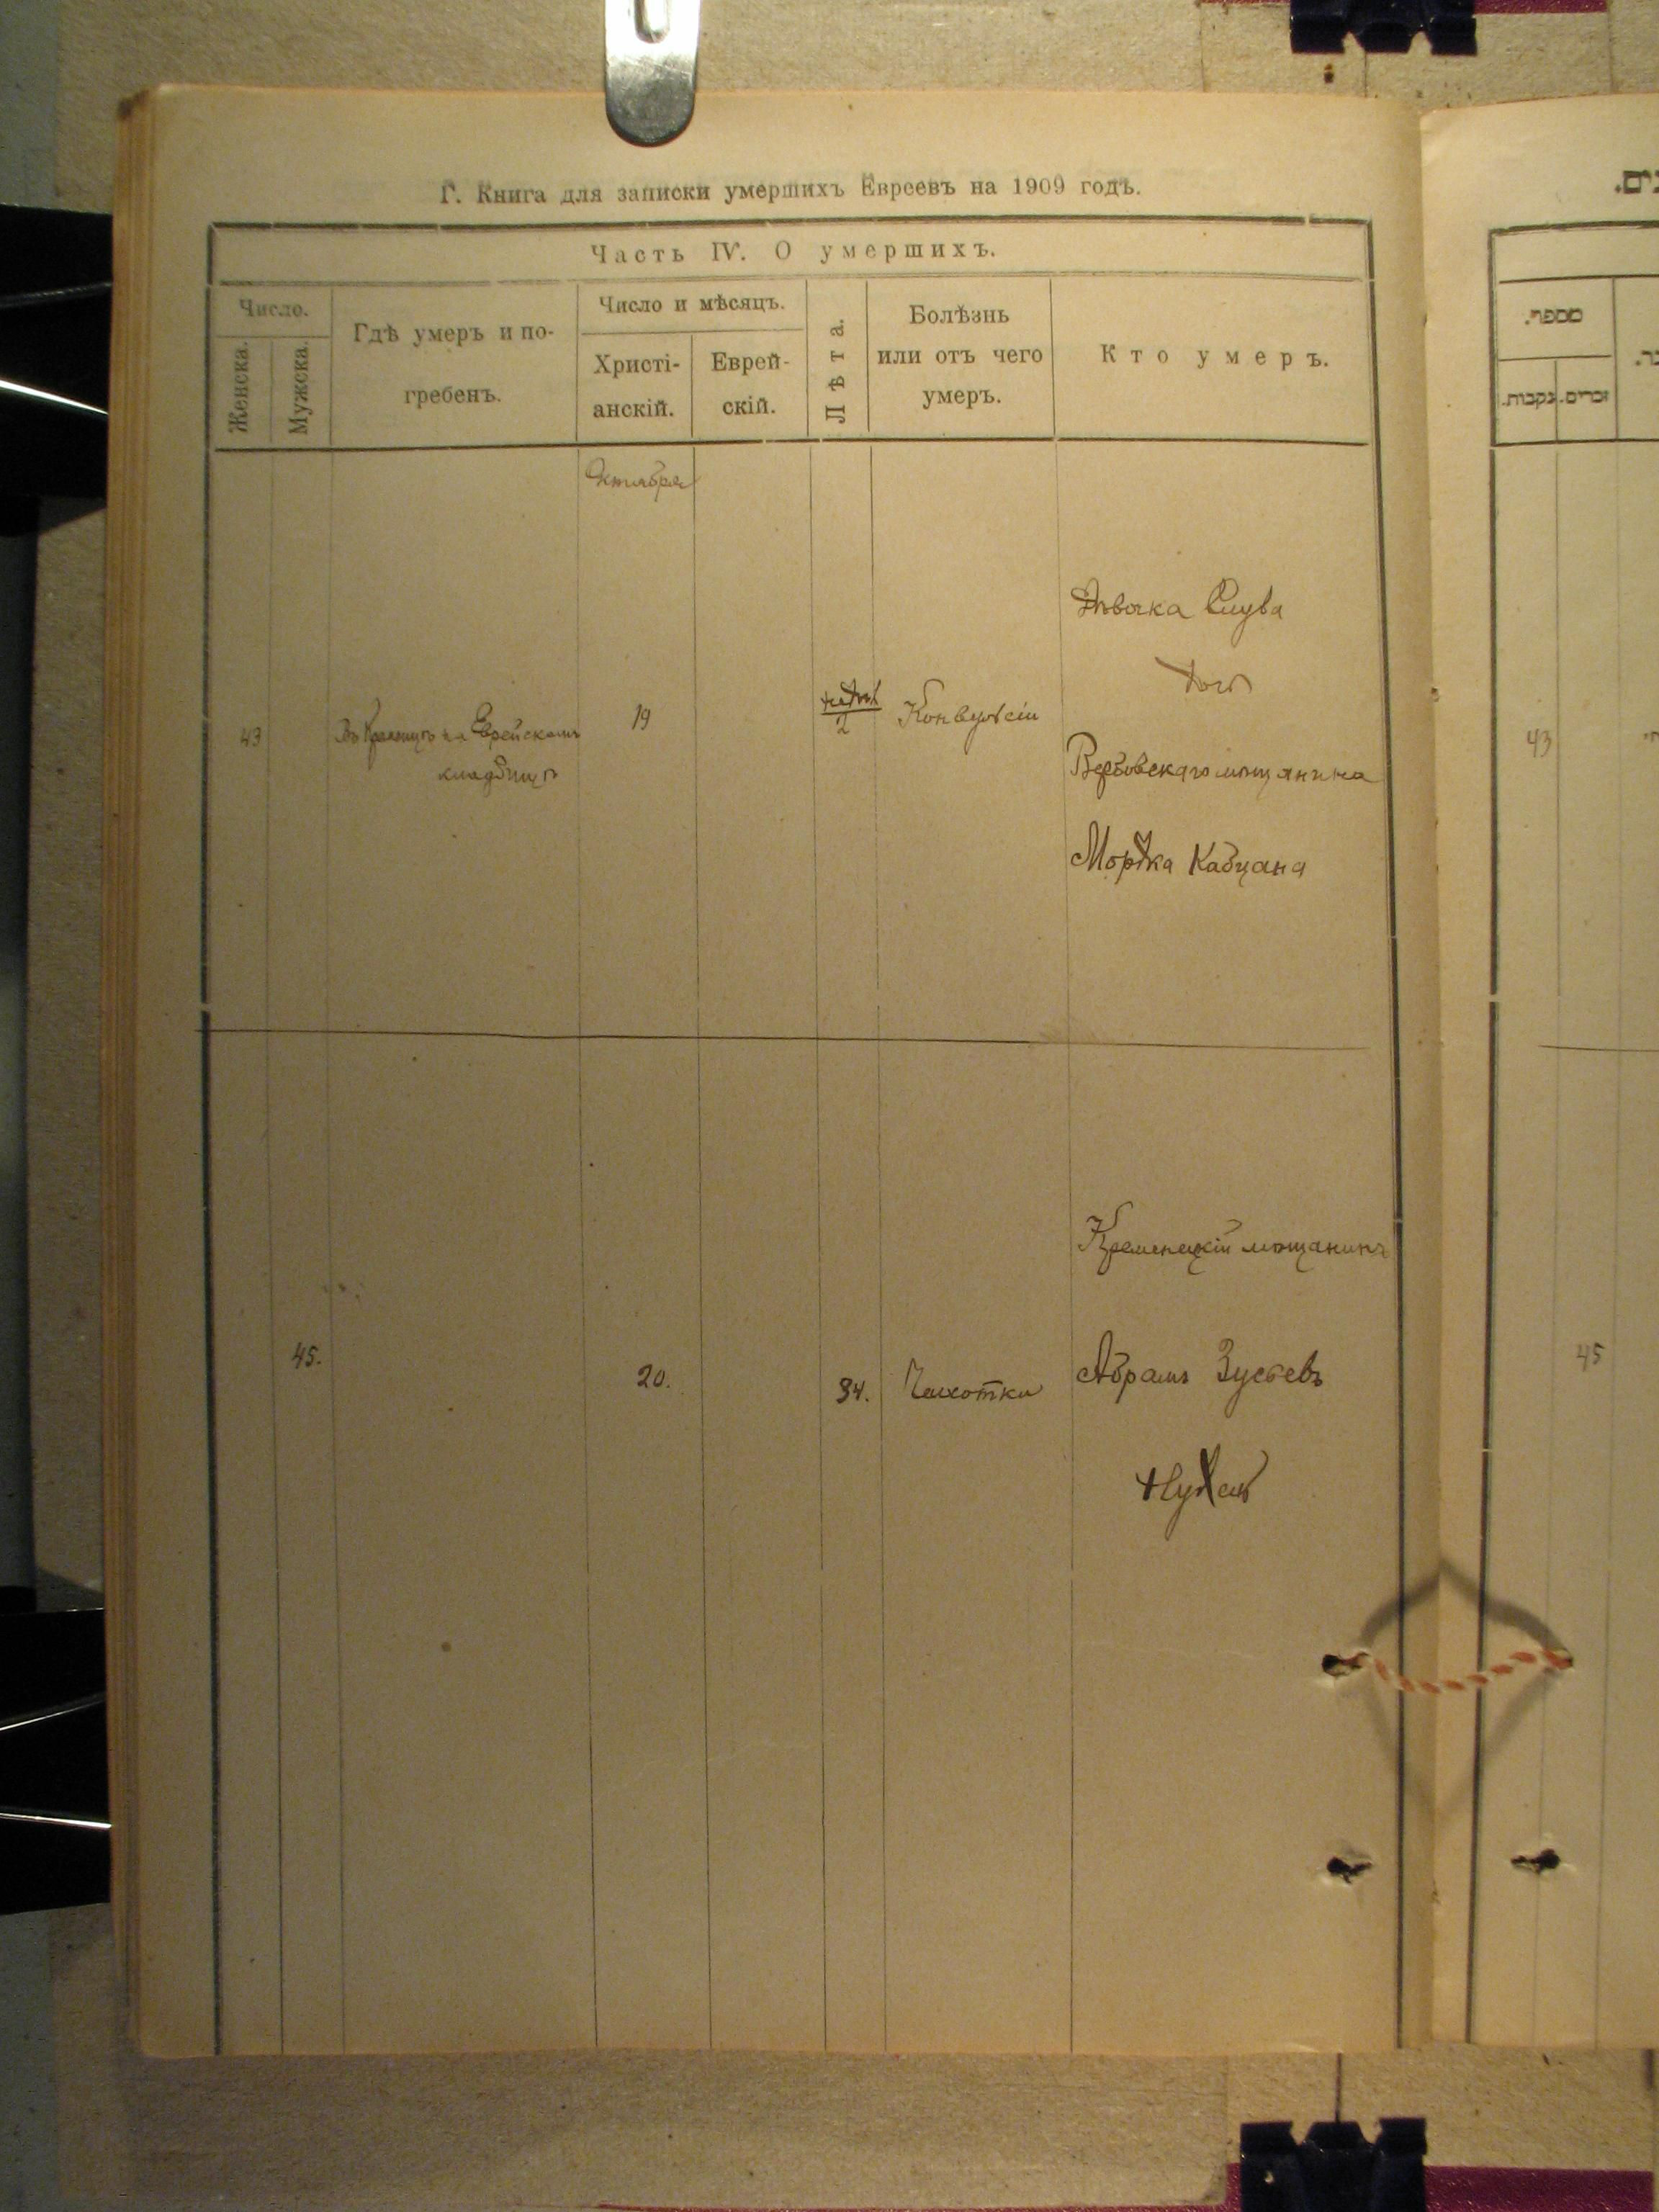 Г. Книга для записки умершихъ Евреевъ на 1909 годъ.
Часть IV. О умершихъ.
Число.
Женска.
Мужска.
Гдѣ умеръ и по-
гребенъ.
Число и мѣсяцъ.
Христі-
анскій.
Еврей-
скій.
Лѣта.
Болѣзнь
или отъ чего
умеръ.
Кто умеръ.
Октября
43
на Еврейскомъ
кладбищѣ
19
2
Конвульсіи
Дѣвочка
дочь
Вербовскаго мѣщанина
Мордка Кабцана
45.
20.
34.
Чахотки
Кременецкій мѣщанинъ
Абрамъ Зусевъ
ים.
מספר.
זכרים.
נקבות.
43
45